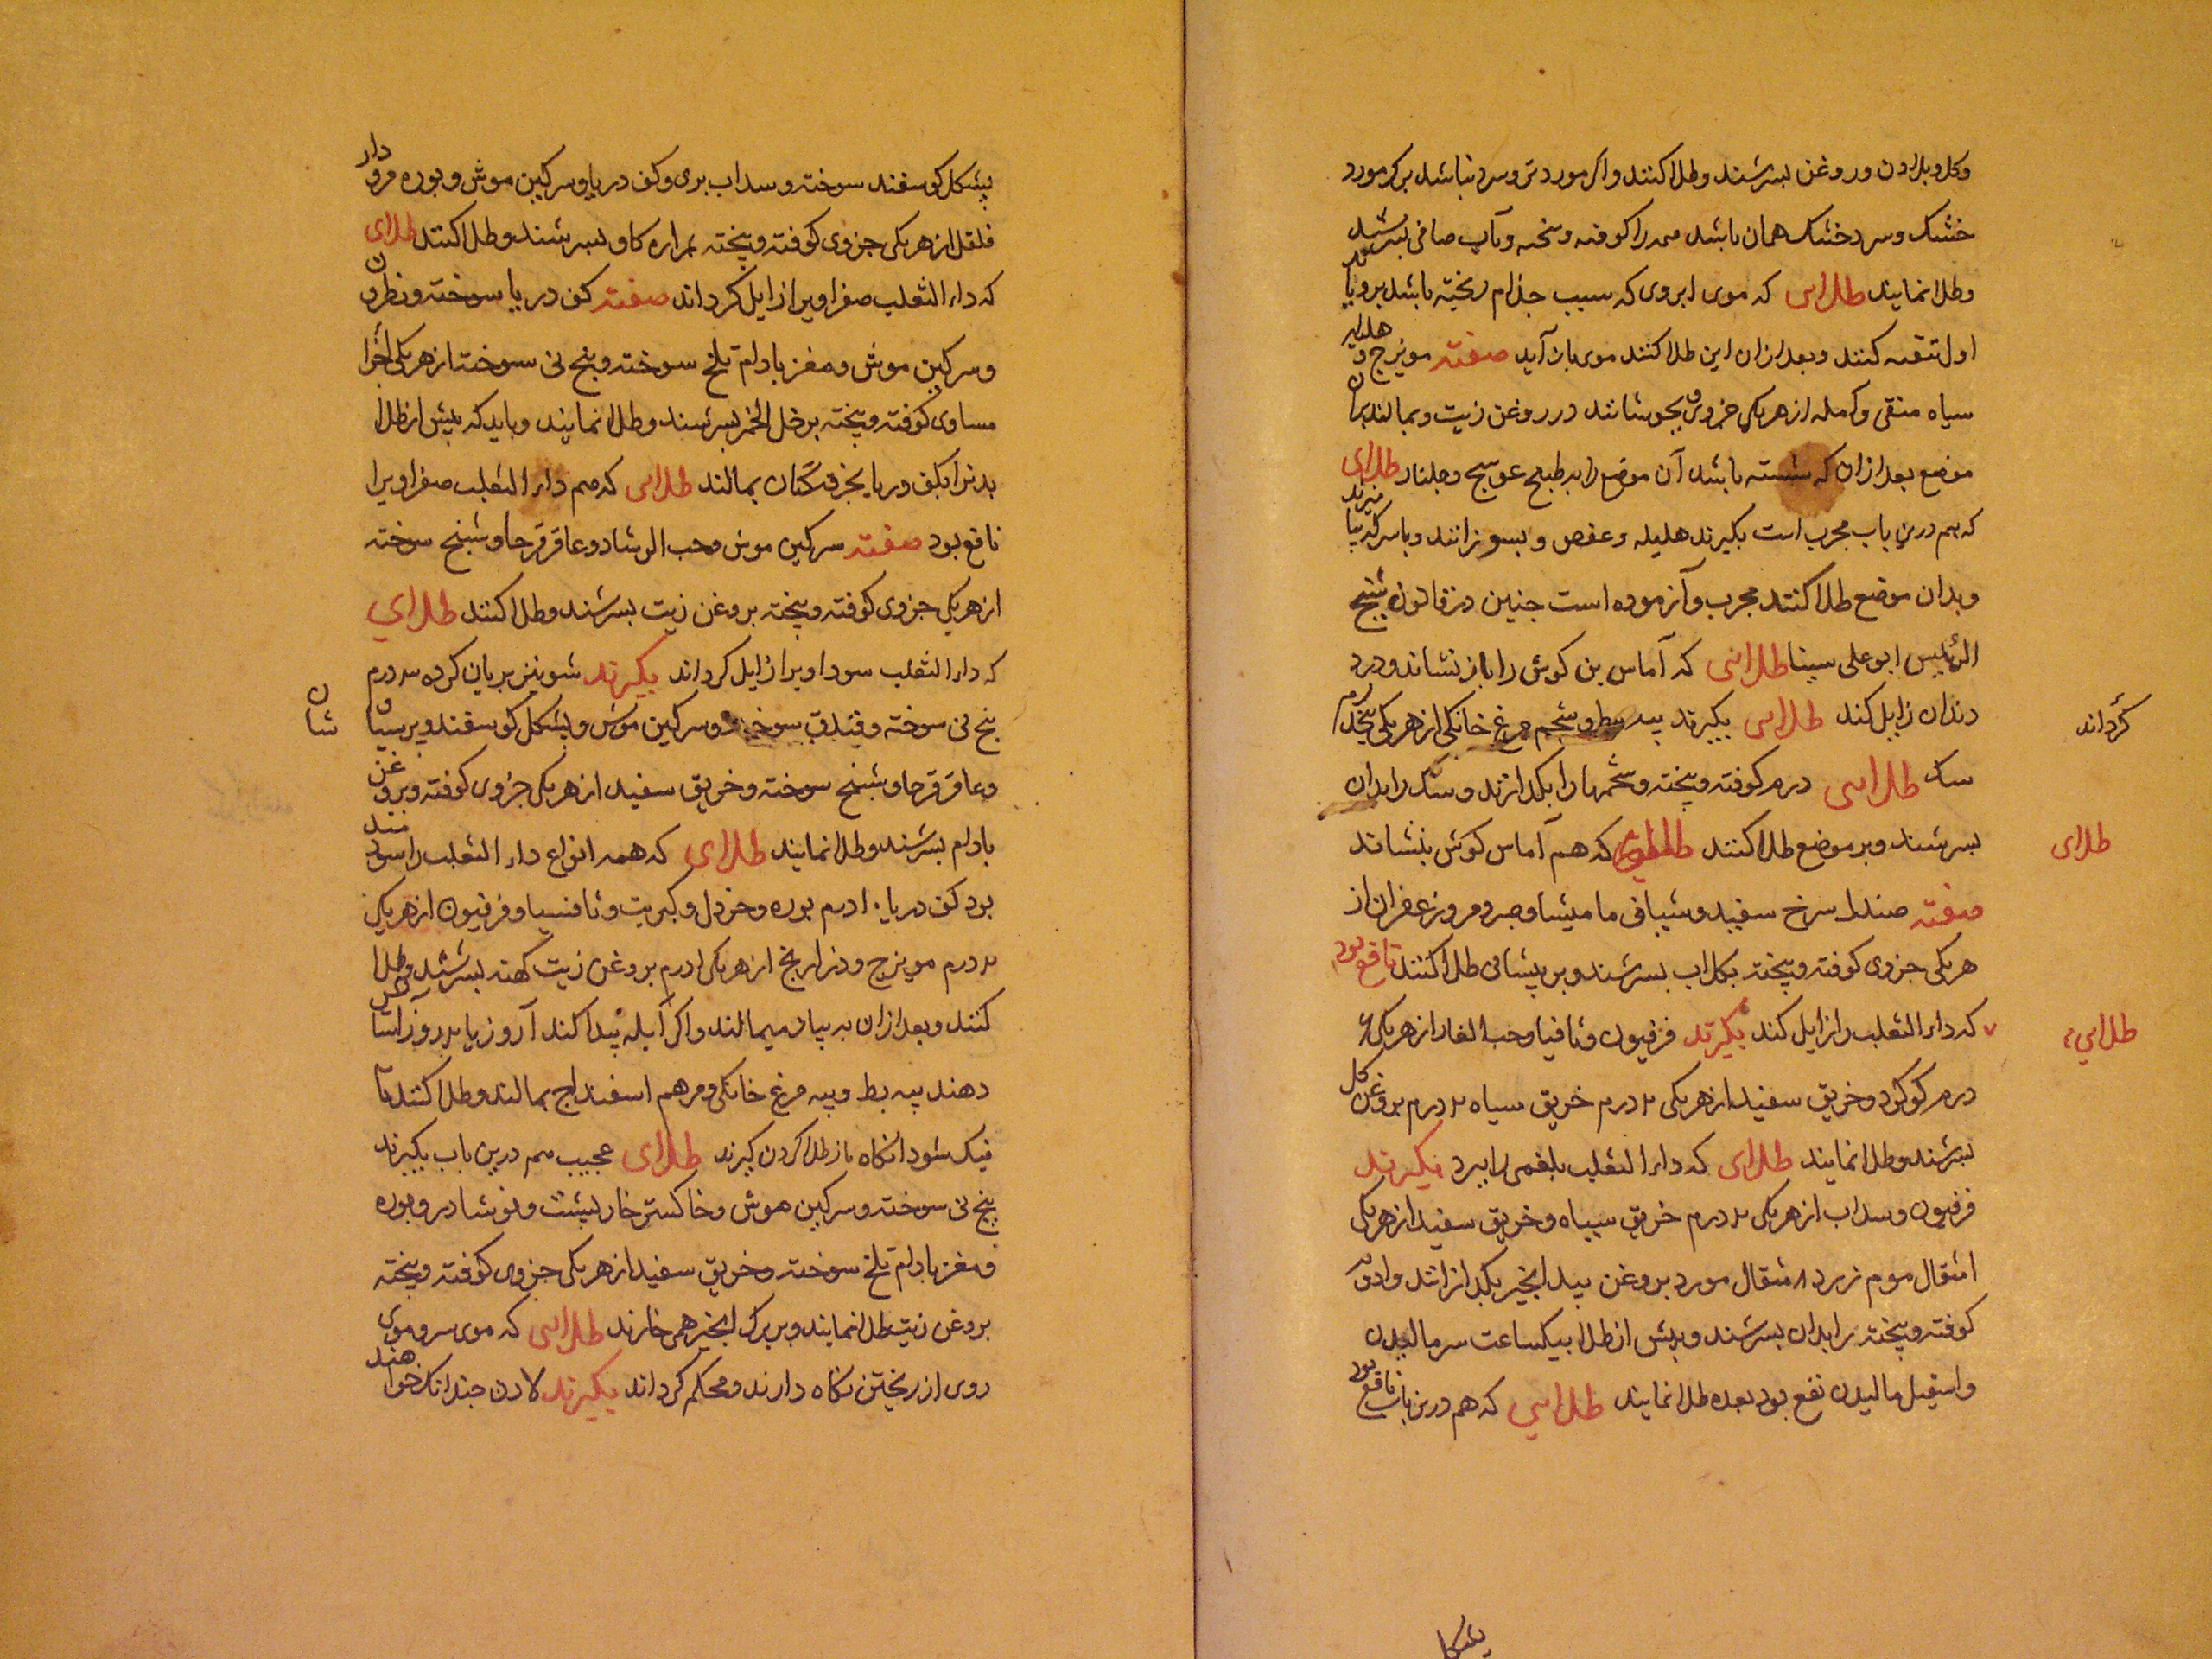 وکل وبلادن وروغن بسرشند وطلا کنند واکر مورد تر وسرد نباشد برک مورد
خشک وسرد خشک همان باشد همه را کوفته وبیخته وبآب صافی بسرشند
وطلا نمایند طلاای که موی ابروی که سبب جذام ریخته باشد برویاند
اول تنقیه کنند وبعد ازان این طلا کنند موی باز آید صفته مویزج وهلیله
سیاه منقی وآمله از هر یکی جزوی بجوشانند در روغن زیت وبمالند بران
موضع بعد ازان که شسته باشد آن موضع را بر طبیخ عوسج وجلنار طلاای
که هم درین باب مجرب است بکیرند هلیله وعفص وبسوزانند وباسرکه بیامیزند
وبدان موضع طلا کنند مجرب وآزموده است جنین در قانون شیخ
الرئیس ابوعلی سینا طلاای که آماس بن کوش را باز نشاند ودرد
دندان زایل کند طلاای بکیرند پیه بط وشحم مرغ خانکی از هر یکی پنجدرم
کرداند
سک طلاای درم کوفته وبیخته وشحمها را بکدازند وسک را بدان
بسرشند وبر موضع طلا کنند که هم آماس کوش بنشاند
طلاای
صفته صندل سرخ سفید وشیاف مامیشا وصبر ومر وزعفران از
هر یکی جزوی کوفته وبیخته بکلاب بسرشند وبر پیشانی طلا کنند نافع بود
که داء الثعلب را زایل کند بکیرند فرفیون وثافیا وحب الغار از هر یکی ۲
طلاای
درم کوکرد وخربق سفید از هر یکی ۲ درم خربق سیاه ۲ درم بروغن کل
بسرشند وطلا نمایند طلاای که داء الثعلب بلغمی را ببرد بکیرند
فرفیون وسداب از هر یکی ۲ درم خربق سیاه وخربق سفید از هر یکی
۱ مثقال موم زرد ۸ مثقال مورد بروغن بید انجیر بکدازانند وادویه
کوفته وبیخته را بدان بسرشند وپیش از طلا بیکساعت سر مالیدن
واسقیل مالیدن نفع بود بعده طلا نمایند طلاای که هم درین باب نافع بود
پشکل
پشکل کوسفند سوخته وسداب بری وکف دریا وسرکین موش وبوره مرودار
فلفل از هر یکی جزوی کوفته وبیخته بمراره کاو بسرشند وطلا کنند طلاای
که داء الثعلب صفراویرا زایل کرداند صفته کف دریا سوخته ونطرون
وسرکین موش ومغز بادام تلخ سوخته وبیخ نی سوخته از هر یکی اجزا
مساوی کوفته وبیخته بر خل الخمر بسرشند وطلا نمایند وباید که پیش از طلا
بدنرا بکف دریا بخرقه کتان بمالند طلاای که هم داء الثعلب صفراویرا
نافع بود صفته سرکین موش وحب الرشاد وعاقرقرحا وشبنج سوخته
از هر یکی جزوی کوفته وبیخته بروغن زیت بسرشند وطلا کنند طلاای
که داء الثعلب سوداویرا زایل کرداند بکیرند شونیز بریان کرده ۳ درم
بیخ نی سوخته وفندق سوخته وسرکین موش وپشکل کوسفند وپرسیاوشان
وعاقرقرحا وشبنج سوخته وخربق سفید از هر یکی جزوی کوفته وبروغن
بادام بسرشند وطلا نمایند طلاای که همه انواع داء الثعلب را سودمند
بود کف دریا ۱۰ درم بوره وخردل وکبریت وثافسیا وفرفیون از هر یکی
۲ درم مویزج وذراریح از هر یکی ۱ درم بروغن زیت کهنه بسرشند وطلا
کنند وبعد ازان به پیاز میمالند واکر آبله پیدا کند آروز یا دو روز آسایش
دهند پیه بط وپیه مرغ خانکی ومرهم اسفیداج بمالند وطلا کنند تا
نیک شود انکاه باز طلا کردن کیرند طلاای عجیب هم درین باب بکیرند
بیخ نی سوخته وسرکین موش وخاکستر خار پشت ونوشادر وبوره
ومغز بادام تلخ سوخته وخربق سفید از هر یکی جزوی کوفته وبیخته
بروغن زیت طلا نمایند وببرک انجیر همی خارند طلاای که موی سر وموی
روی از ریختن نکاه دارند ومحکم کرداند بکیرند لادن جندانک خواهند